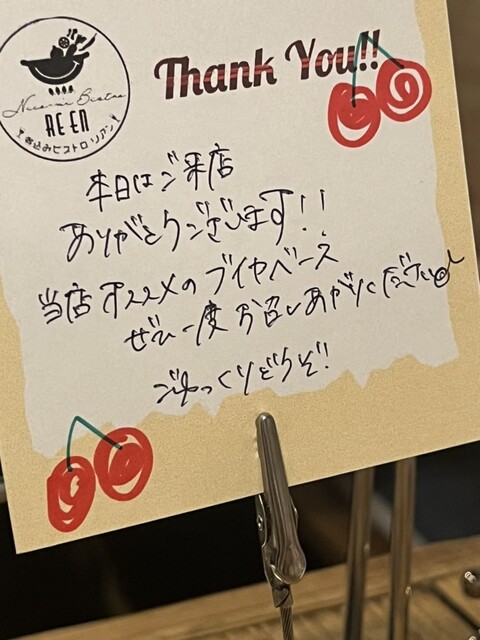 Thank You!!
RE EN
煮込みビストロ リアン
本日はご来店
ありがとうございます!!
当店オススメの ブイヤベース
ぜひ一度 お召しあがりください
ごゆっくりどうぞ!